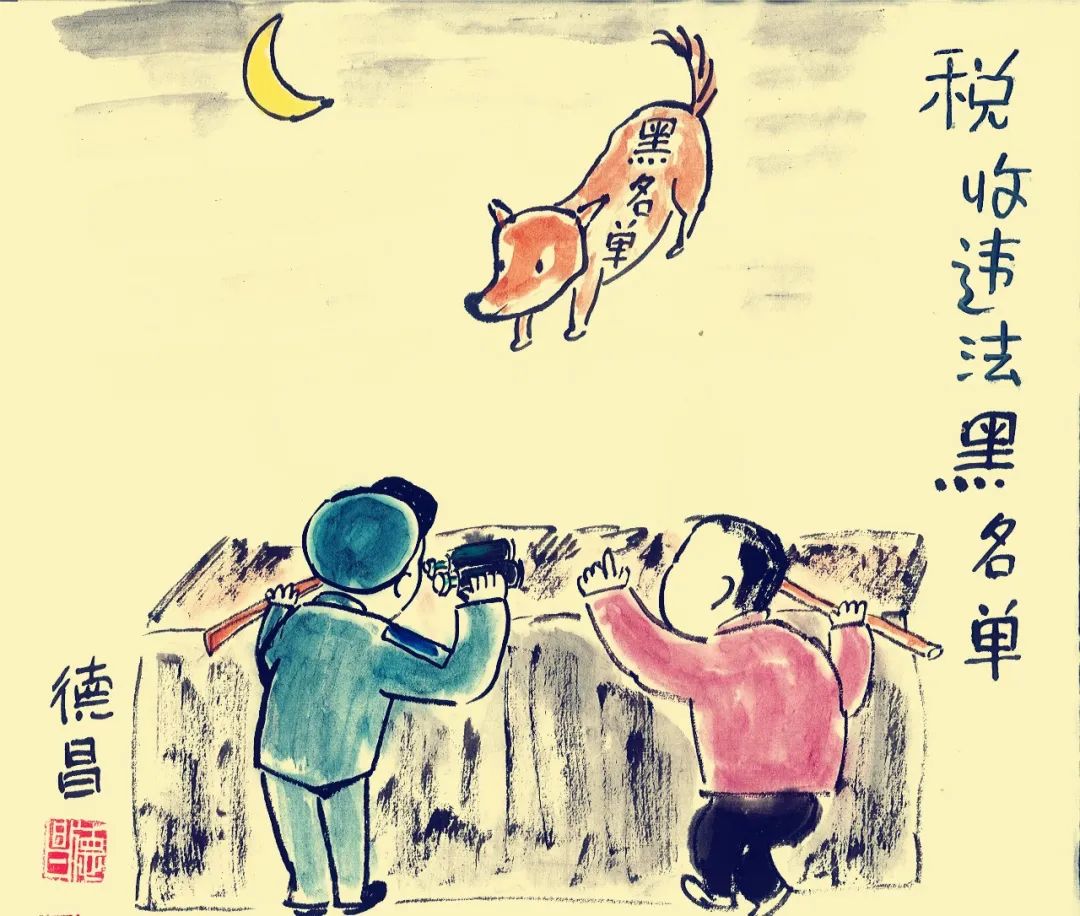 税收违法黑名单
黑名单
德昌
德昌